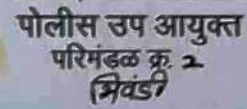 पोलीस उप आयुक्त
परिमंडळ क्र. 2
भिवंडी